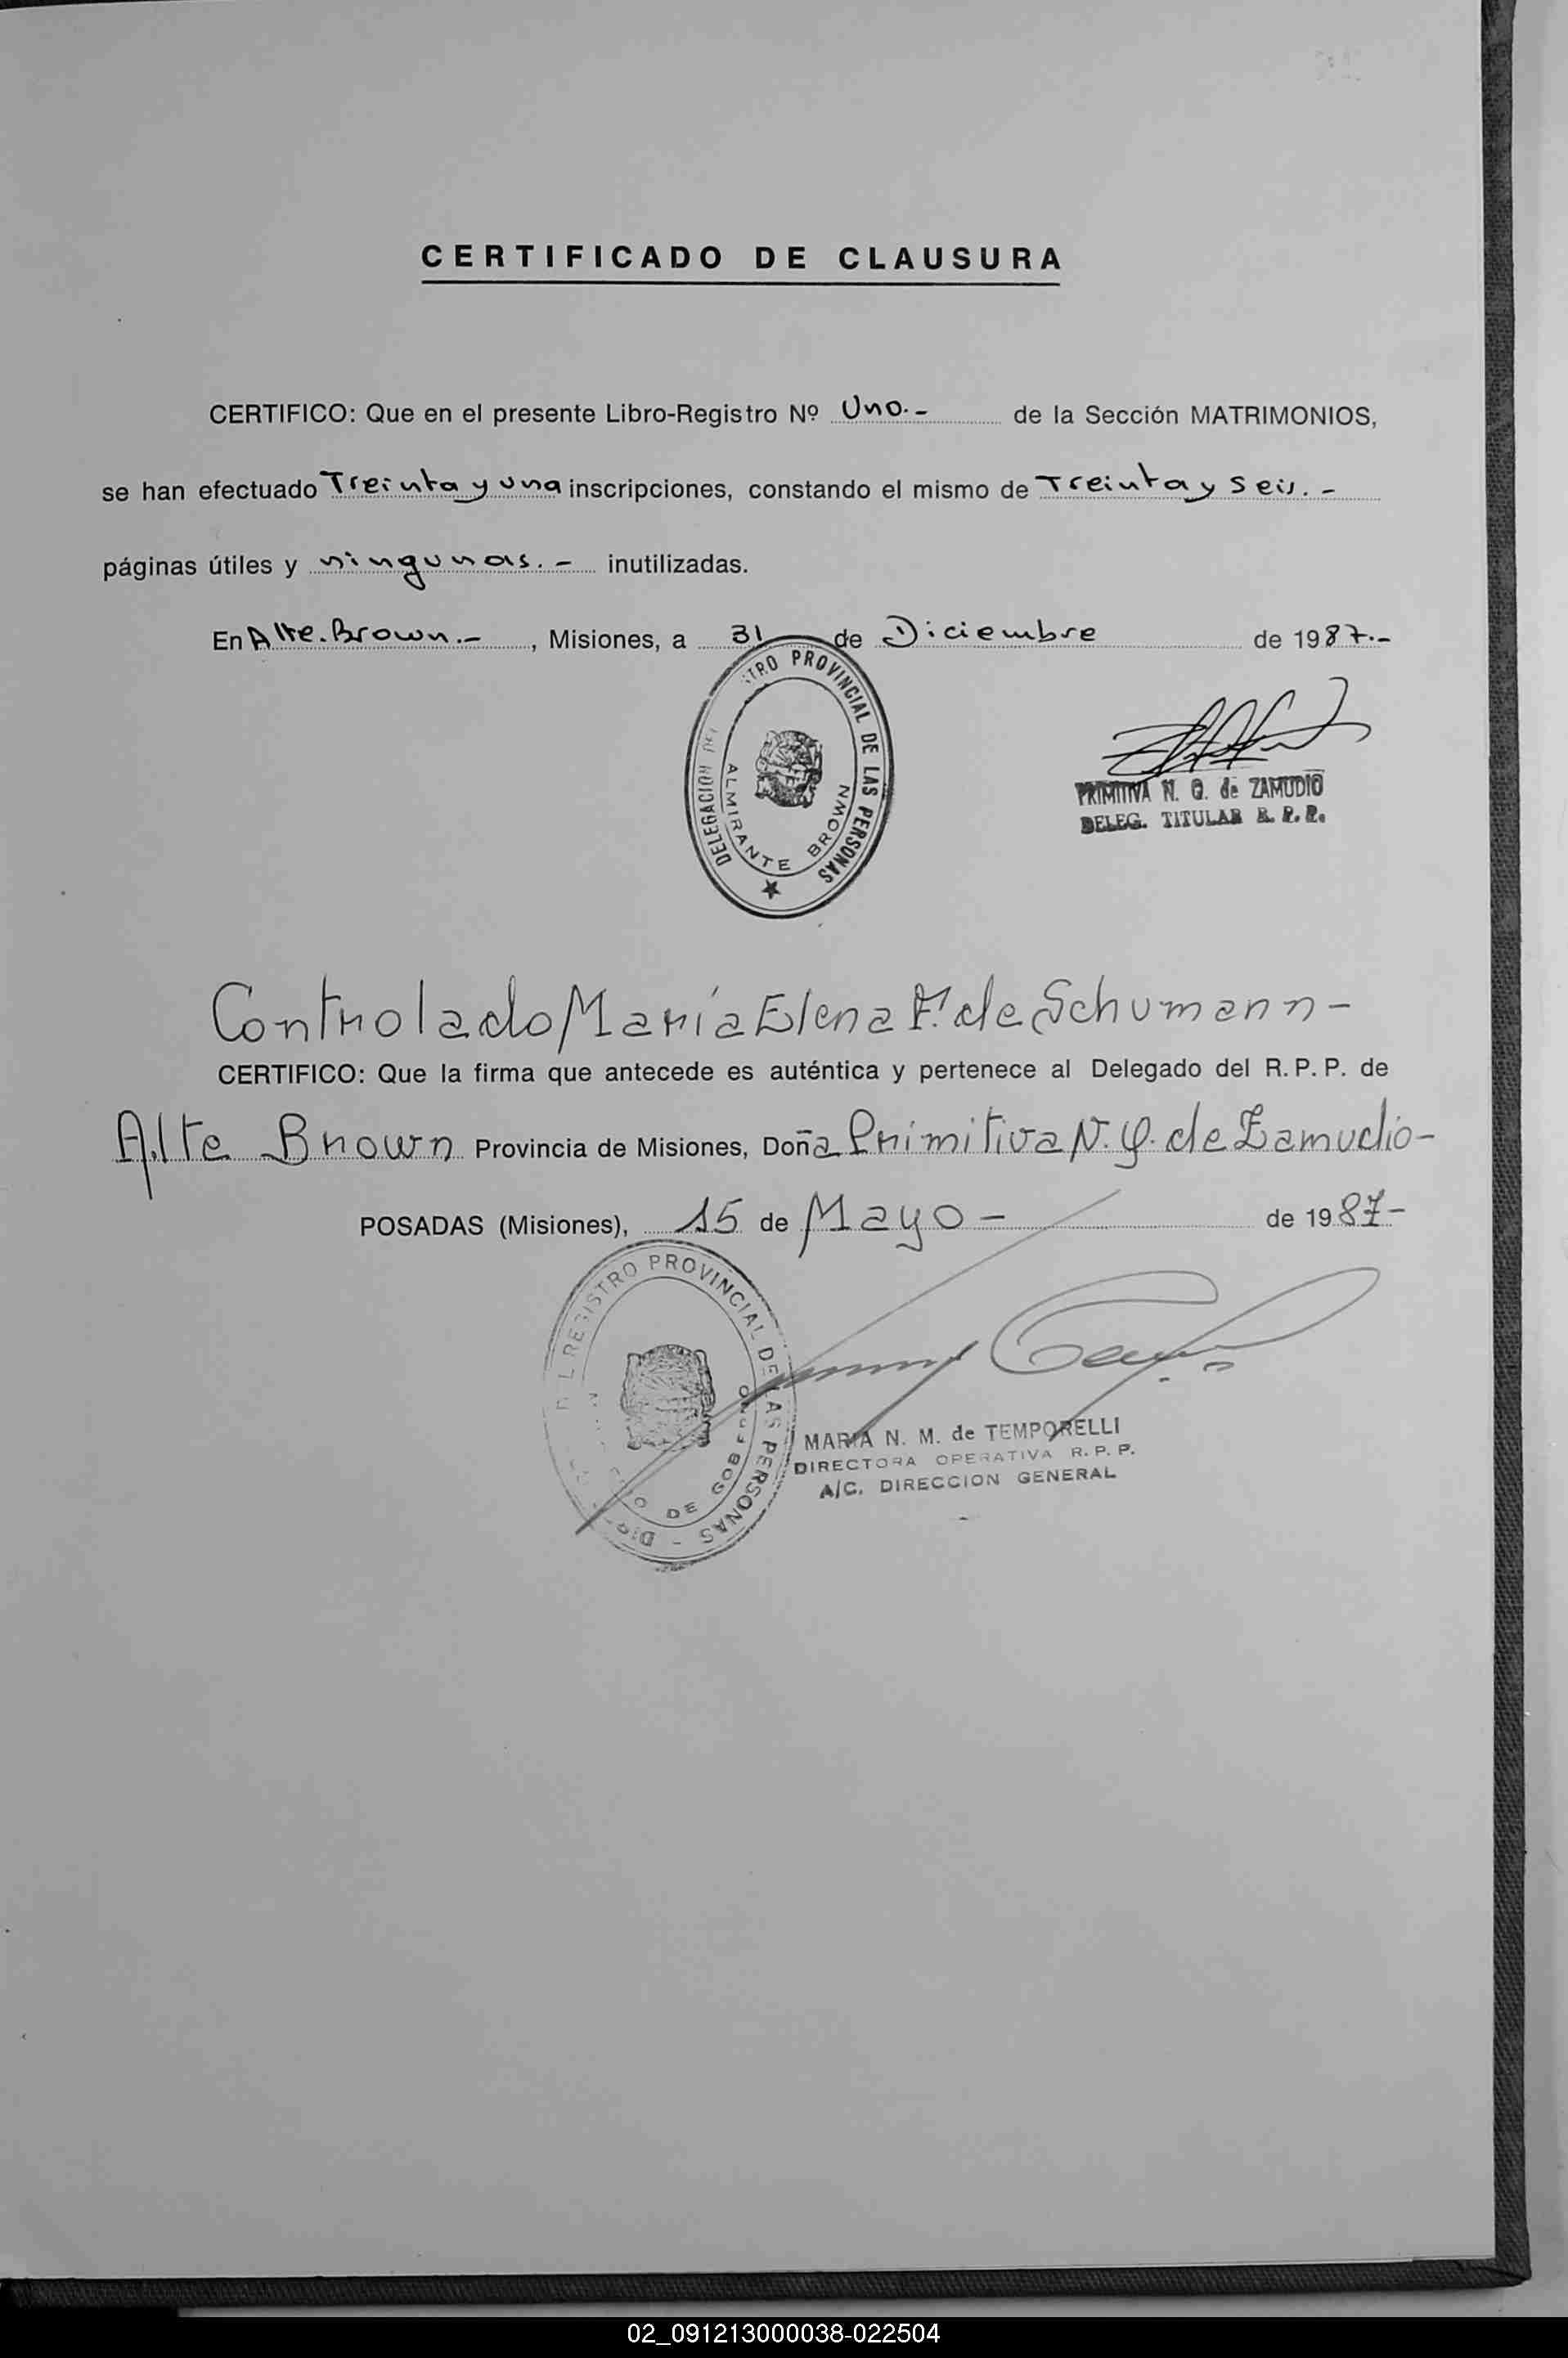 CERTIFICADO DE CLAUSURA
CERTIFICO: Que en el presente Libro-Registro Nº Uno.- de la Sección MATRIMONIOS,
se han efectuado Treinta y una inscripciones, constando el mismo de Treinta y Seis.-
páginas útiles y ningunas.- inutilizadas.
En Alte. Brown.-, Misiones, a 31 de Diciembre de 1987.-
DELEGACION DEL REGISTRO PROVINCIAL DE LAS PERSONAS
ALMIRANTE BROWN
PRIMITIVA N. G. de ZAMUDIO
DELEG. TITULAR R. P. P.
Controlado María Elena F. de Schumann-
CERTIFICO: Que la firma que antecede es auténtica y pertenece al Delegado del R. P. P. de
Alte Brown Provincia de Misiones, Doña Primitiva N. G. de Zamudio-
POSADAS (Misiones), 15 de Mayo - de 1987-
REGISTRO PROVINCIAL DE LAS PERSONAS
DE GOBIERNO
MARIA N. M. de TEMPORELLI
DIRECTORA OPERATIVA R. P. P.
A/C. DIRECCION GENERAL
02_091213000038-022504